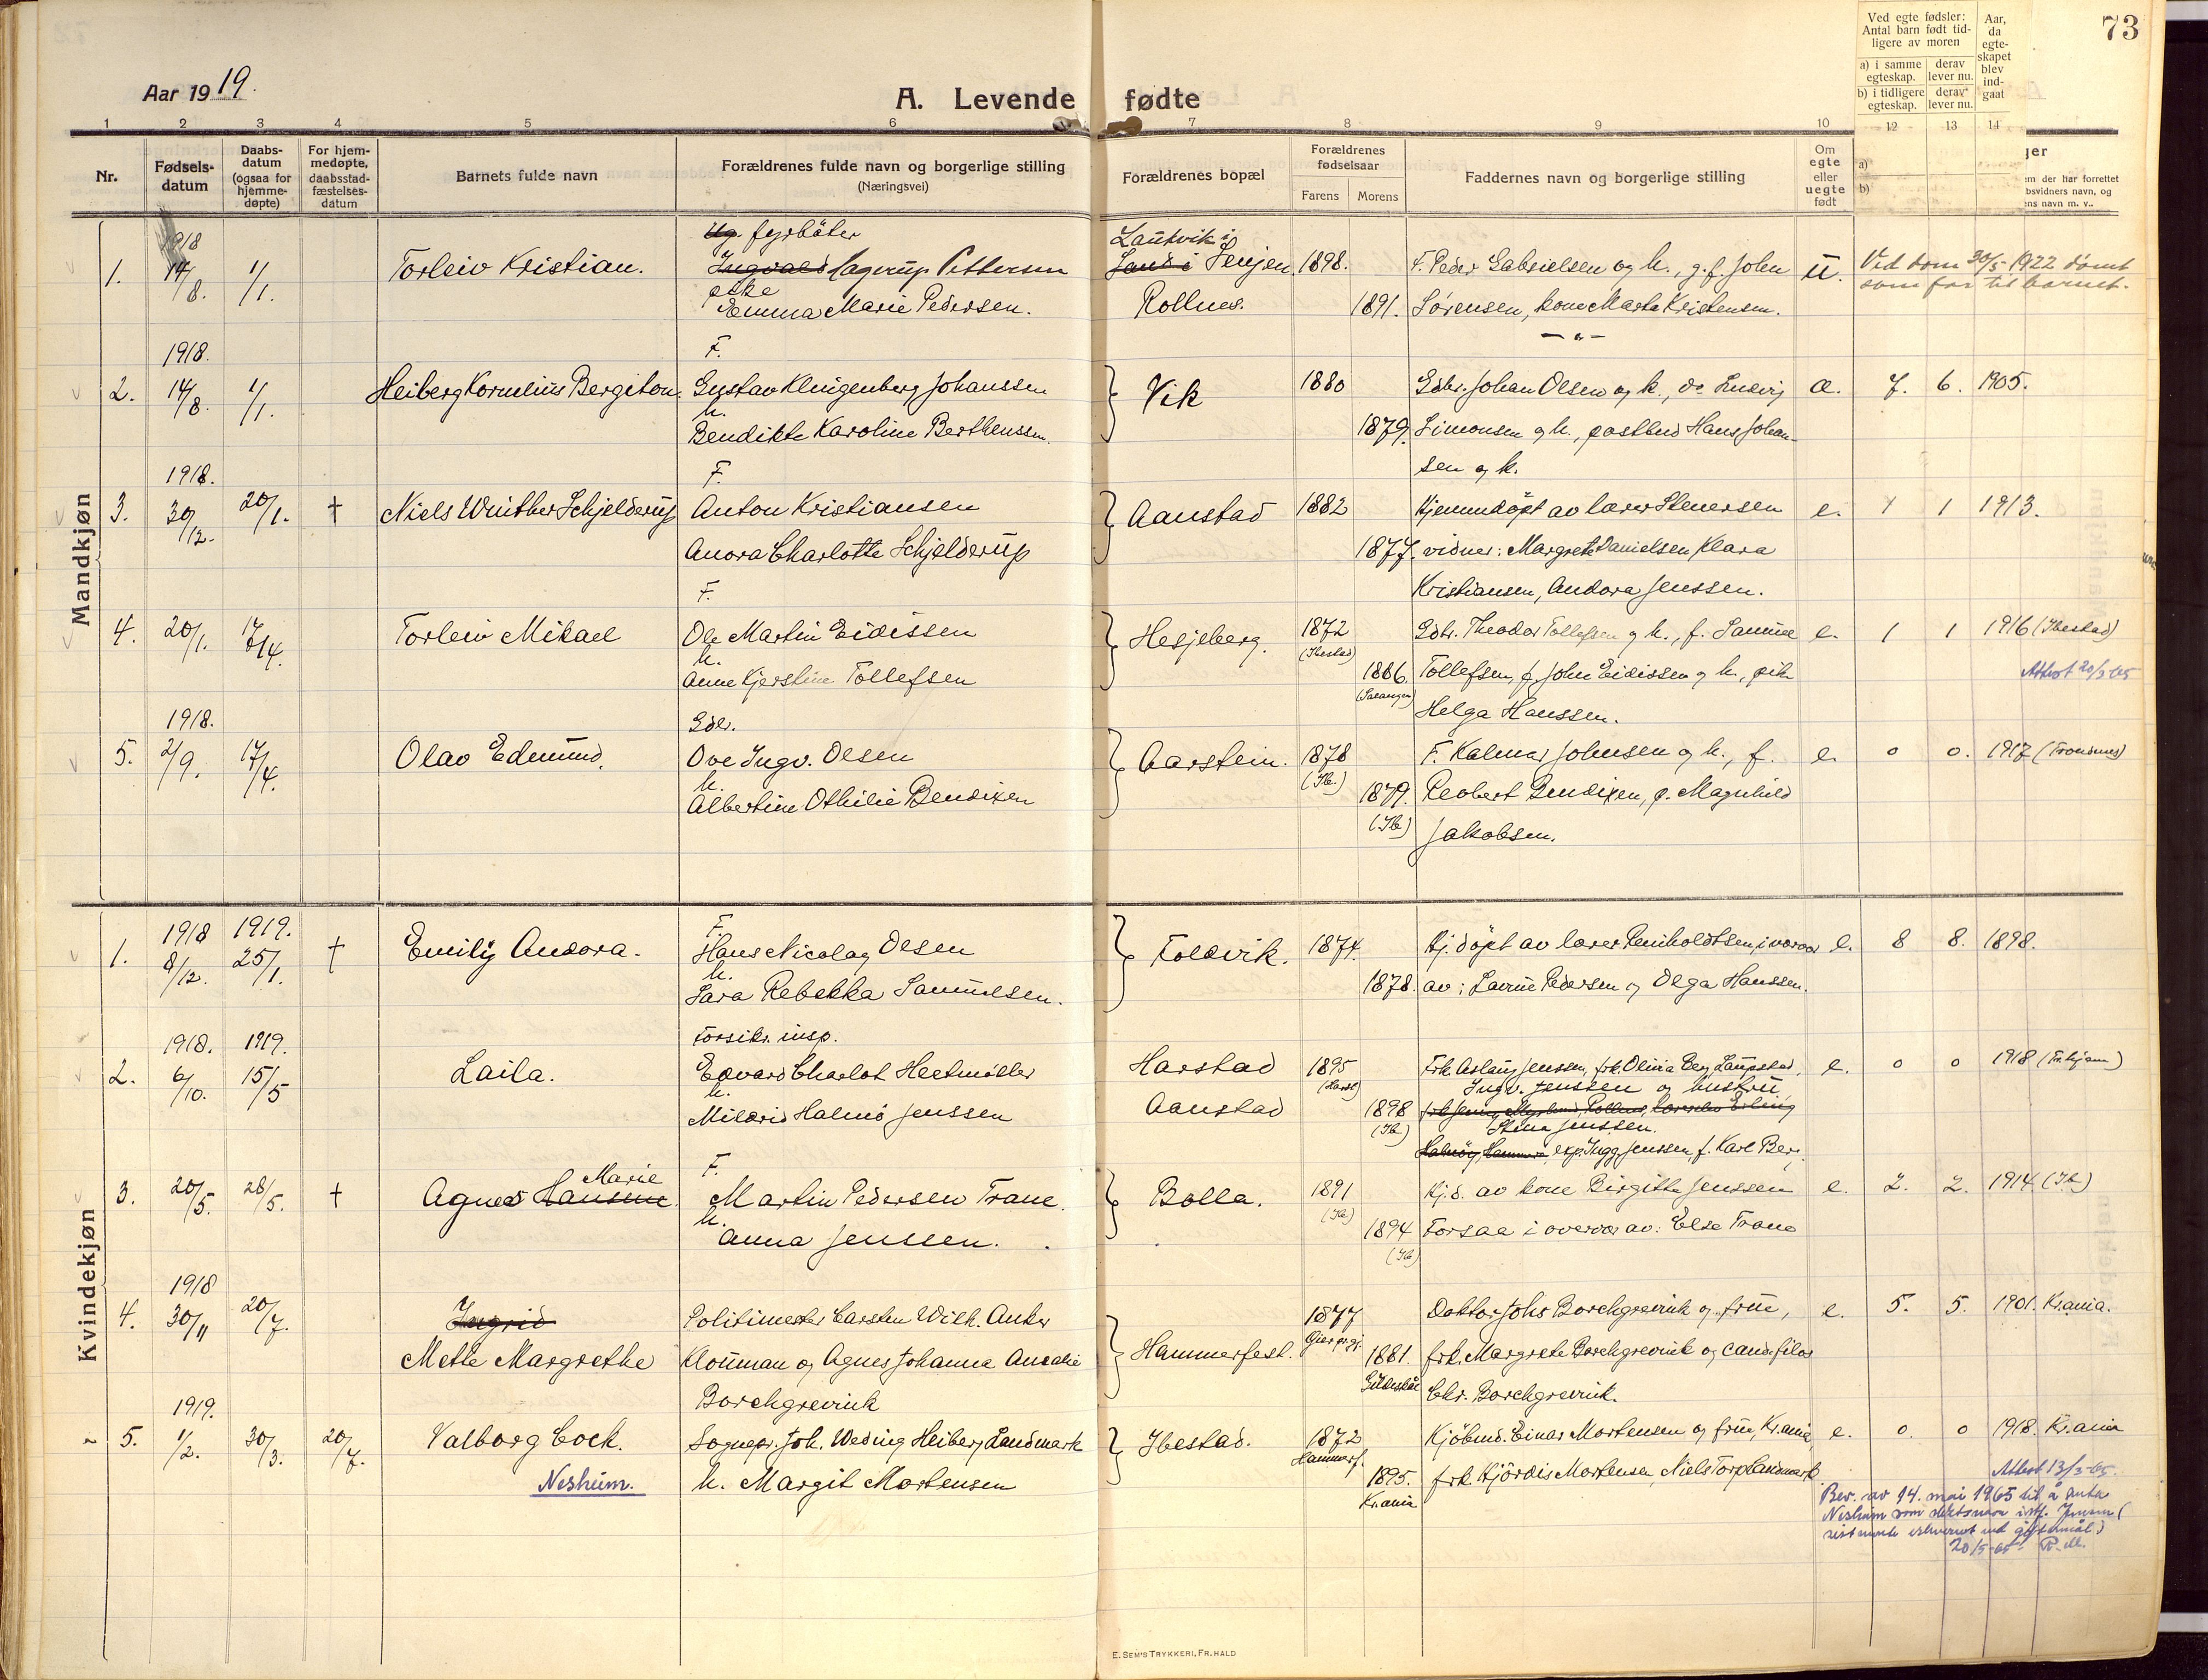 73
Aar 1919.
A. Levende fødte
Ved egte fødsler: Antal barn født tidligere av moren
a) i samme egteskap. derav lever nu.
b) i tidligere egteskap. derav lever nu.
Aar, da egteskapet blev indgaat
1 2 3 4 5 6 7 8 9 10 12 13 14
Nr.
Fødselsdatum
Daabsdatum (ogsaa for hjemmedøpte)
For hjemmedøpte, daabsstadfæstelsesdatum
Barnets fulde navn
Forældrenes fulde navn og borgerlige stilling
(Næringsvei)
Forældrenes bopæl
Forældrenes fødselsaar
Farens Morens
Faddernes navn og borgerlige stilling
Om egte eller uegte født
a)
b)
ger
em der har forrettet
bsvidners navn, og
ens navn m. v..
Mandkjøn
1918 Ug. fyrbøter
1. 14/8. 1/1. Torleiv Kristian. Ingvald Hagerup Pettersen Sand i Senjen 1898. F. Peder Gabrielsen og h., g.f. John u. Ved dom 20/5 1922 dømt
som far til barnet.
pike
Emma Marie Pedersen. Rollnes. 1891. Sørensen, kone Marta Kristensen.
1918. F.
2. 14/8. 1/1. Heiberg Kornelius Bergiton. Gustav Klingenberg Johanssen Vik 1880 Gdbr. Johan Olsen og k., do Ludvig 7. 6. 1905.
h.
Bendikte Karoline Berthenssen. 1879. Simonsen og h., postbud Hans Johan-
sen og k.
1918. F.
3. 30/12. 20/1. † Niels Winther Schjelderup Anton Kristiansen Aanstad 1882 Hjemmedøpt av lærer Stenersen e. 1 1 1913.
Anora Charlotte Schjelderup 1877. vidner: Margrete Danielsen Klara
F. Kristiansen, Andora Jenssen.
4. 20/1. 17/4. Torleiv Mikael Ole Martin Eidissen Hesjeberg. 1872 (Ibestad) Gdbr. Theodor Tollefsen og h., f. Samuel e. 1 1 1916 (Ibestad)
h.
Anne Kjerstine Tollefsen 1886. (Salangen) Tollefsen, f. John Eidissen og h., pike Attest 20/3-65
Helga Hanssen.
1918. Gdbr.
5. 2/9. 17/4. Olav Edmund. Ove Ingv. Olsen Aarstein. 1878 (Ib.) F. Kalmar Johnsen og h., f. e. 0 0. 1917 (Trondnes)
h.
Albertine Othilie Bendixen 1879. (Ib) Robert Bendixen, p. Magnhild
Jakobsen.
Kvindekjøn
1918 1919. F.
1. 8/12. 25/1. † Emily Andora. Hans Nicolay Olsen Foldvik. 1874. Hj. døpt av lærer Reinholdtsen, i overvær e. 8 8. 1898.
h.
Sara Rebekka Samuelsen. 1878. av: Laurine Pedersen og Olga Hanssen.
1918. 1919. Forsikr. insp.
2. 6/10. 15/5 Laila. Edvard Charlot Heetmøller Harstad 1895 (Harst) Frk. Aslaug Jenssen, frk. Olivia Berg, Laupstad, e. 0 0 1918
h. Ingv. Jenssen og hustru
Mildrid Halmø Jenssen Aanstad 1898 (Ib)
Stina Jenssen.
exp. Ingg. Jenssen, f. Karl Berg.
Marie F.
3. 20/5. 28/5. † Agnes Hansine. Martin Pedersen Trane. Bolla. 1891 (Ib) Hj. d. av kone Birgitte Jenssen e. 2. 2. 1914 (Ib)
h.
Anna Jenssen. 1894 (Ib) Forsaa i overvær av: Else Trane
1918
4. 30/11 20/7. Ingrid Politimester Carsten Wilh. Anker Hammerfest. 1877 Doktor Johs Borchgrevink og frue, e. 5. 5. 1901. Kr.ania.
Mette Margrethe Klouman og Agnes Johanne Amalie 1881. Gildeskål frk. Margrete Borchgrevink og cand. filos
Borchgrevink Chr. Borchgrevink.
1919.
5. 1/2. 30/3. 20/7. Valborg Cock. Sognepr. Joh. Weding Heiberg Landmark Ibestad. 1872 Hammerf. Kjøbmd. Einar Mortensen og frue, Kr.ania, e. 0. 0 1918. Kr.ania
Nesheim. h. Margit Mortensen 1895. Kr.ania frk. Hjördis Mortensen, Niels Torp Landmark. Attest 13/3-65.
Bev. av 14. mai 1965 til å anta
Nesheim som slektsnavn istf. Jensen (
sistnevnte ervervet ved giftermål)
20/5-65
E. SEM'S TRYKKERI, FR.HALD